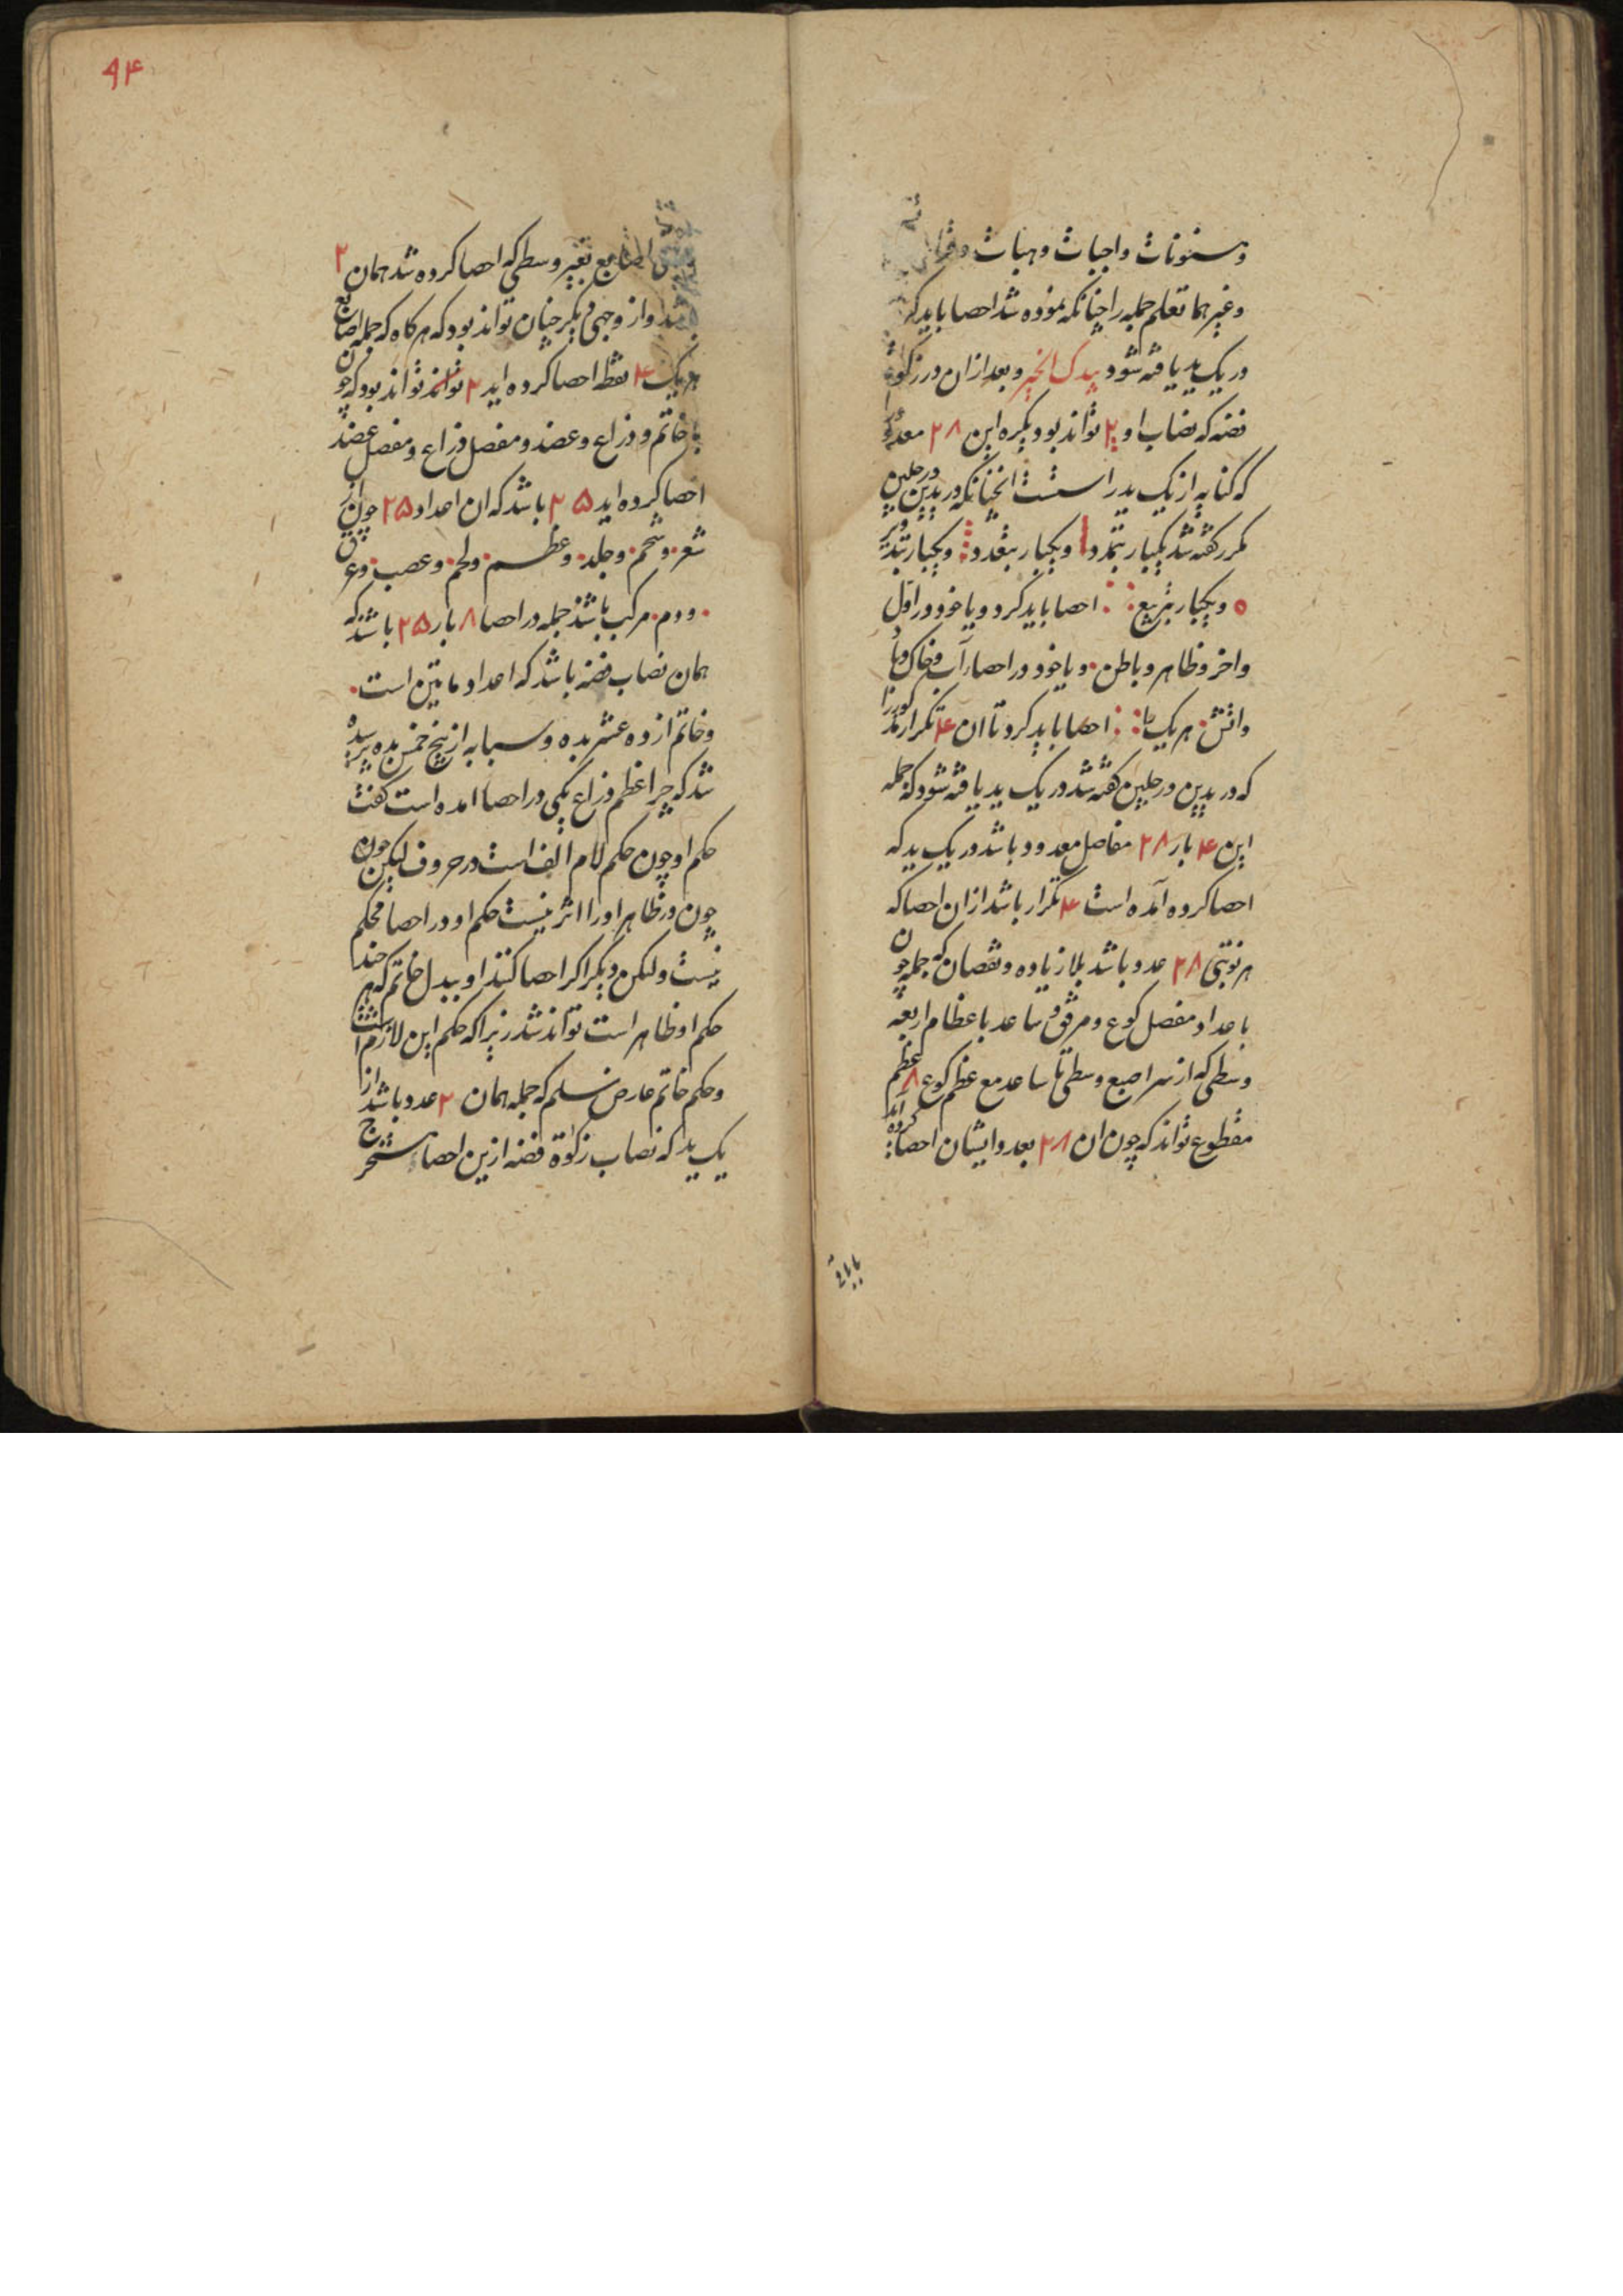 ومسنونات واجبات وهیات
وغیرهما تعلم جمله را چنانکه نموده شد احصا باید کرد
در یک ید یافته شود بیدک الخیر و بعد ازان در زکوة
فضه که نصاب او ۲ تواند بود دیکره این ۲۸ معدود
که کنایه از یک ید راستست انچنانکه در یدین ورجلین
مکرر کفته شد یکبار بتمدد ا ویکبار بتعدد ⁝ ویکبار بتدویر
ه ویکبار بتربیع ⁘ احصا باید کرد ویا خود در اول
واخر وظاهر وباطن ویا خود در احصاء آب وخاک وباد
واتش هر یک را ⁘ احصا باید کرد تا ان ۴ تکرار مذکور را
که در یدین ورجلین کفته شد در یک ید یافته شود که جمله
این ۴ بار ۲۸ مفاصل معدود باشد در یک ید که
احصا کرده آمده است ۴ تکرار باشد ازان احصا که
هر نوبتی ۲۸ عدد باشد بلا زیاده ونقصان که جمله چون
باعداد مفصل کوع ومرفق ساعد باعظام اربعه
وسطی که از سر اصبع وسطی تا ساعد مع عظم کوع ۸ عظم
مقطوع تواند که چون ان ۲۸ بعدد ایشان احصا کرده آید
۹۴
اصابع بغیر وسطی که احصا کرده شد همان ۲
باشد واز وجهی دیکر چنان تواند بود که هر کاه که جمله اصابع
هر یک ۴ نقطه احصا کرده اید ۲ تواند تواند بود که چون
با خاتم وذراع وعضد ومفصل ذراع ومفصل عضد
احصا کرده اید ۲۵ باشد که ان اعداد ۲۵ چون از
شعر · وشحم · وجلد · وعظم · ولحم · وعصب · وعرق
· ودم · مرکب باشد جمله در احصا ۸ بار ۲۵ باشد که
همان نصاب فضه باشد که اعداد مایتین است ·
وخاتم از ده عشر بده وسبابه از پنج خمس بده پرسیده
شد که چرا عظم ذراع یکی در احصا امده است کفت
حکم او چون حکم لام الف است در حروف لیکن چون
چون در ظاهر اورا اثر نیست حکم او در احصا محکم
نیست ولکن دیکر اکر احصا کنند او ببدل خاتم که هر چند
حکم او ظاهر است تواند شد زیرا که حکم این لازم است
وحکم خاتم عارض نسلم که جمله همان ۲ عدد باشد از
یک ید که نصاب زکوة فضه ازین احصا مستخرج